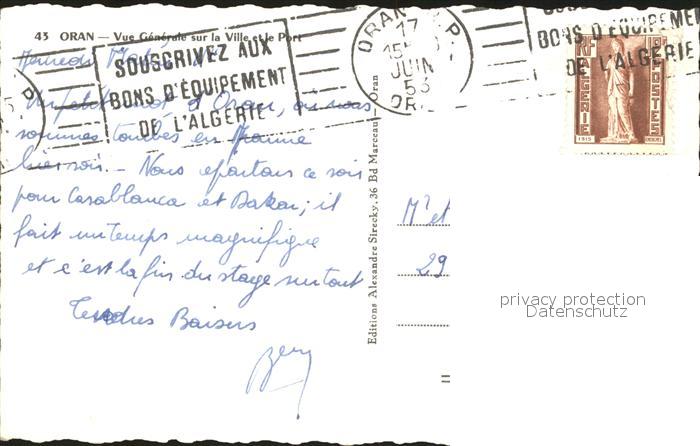 43 ORAN — Vue Générale sur la Ville et le Port
SOUSCRIVEZ AUX
BONS D'ÉQUIPEMENT
DE L'ALGÉRIE
ORAN R.P.
17
15
JUIN
53
BONS D'ÉQUIPEMENT
DE L'ALGÉRIE
RF
POSTES
ALGERIE
Un petit mot d'Oran, où nous
sommes tombés en panne
hier soir. - Nous repartons ce soir
pour Casablanca et Dakar; il
fait un temps magnifique
et c'est la fin du stage surtout
Tendres Baisers
Editions Alexandre Sirecky, 36 Bd Marceau - Oran
Mr et
29
privacy protection
Datenschutz